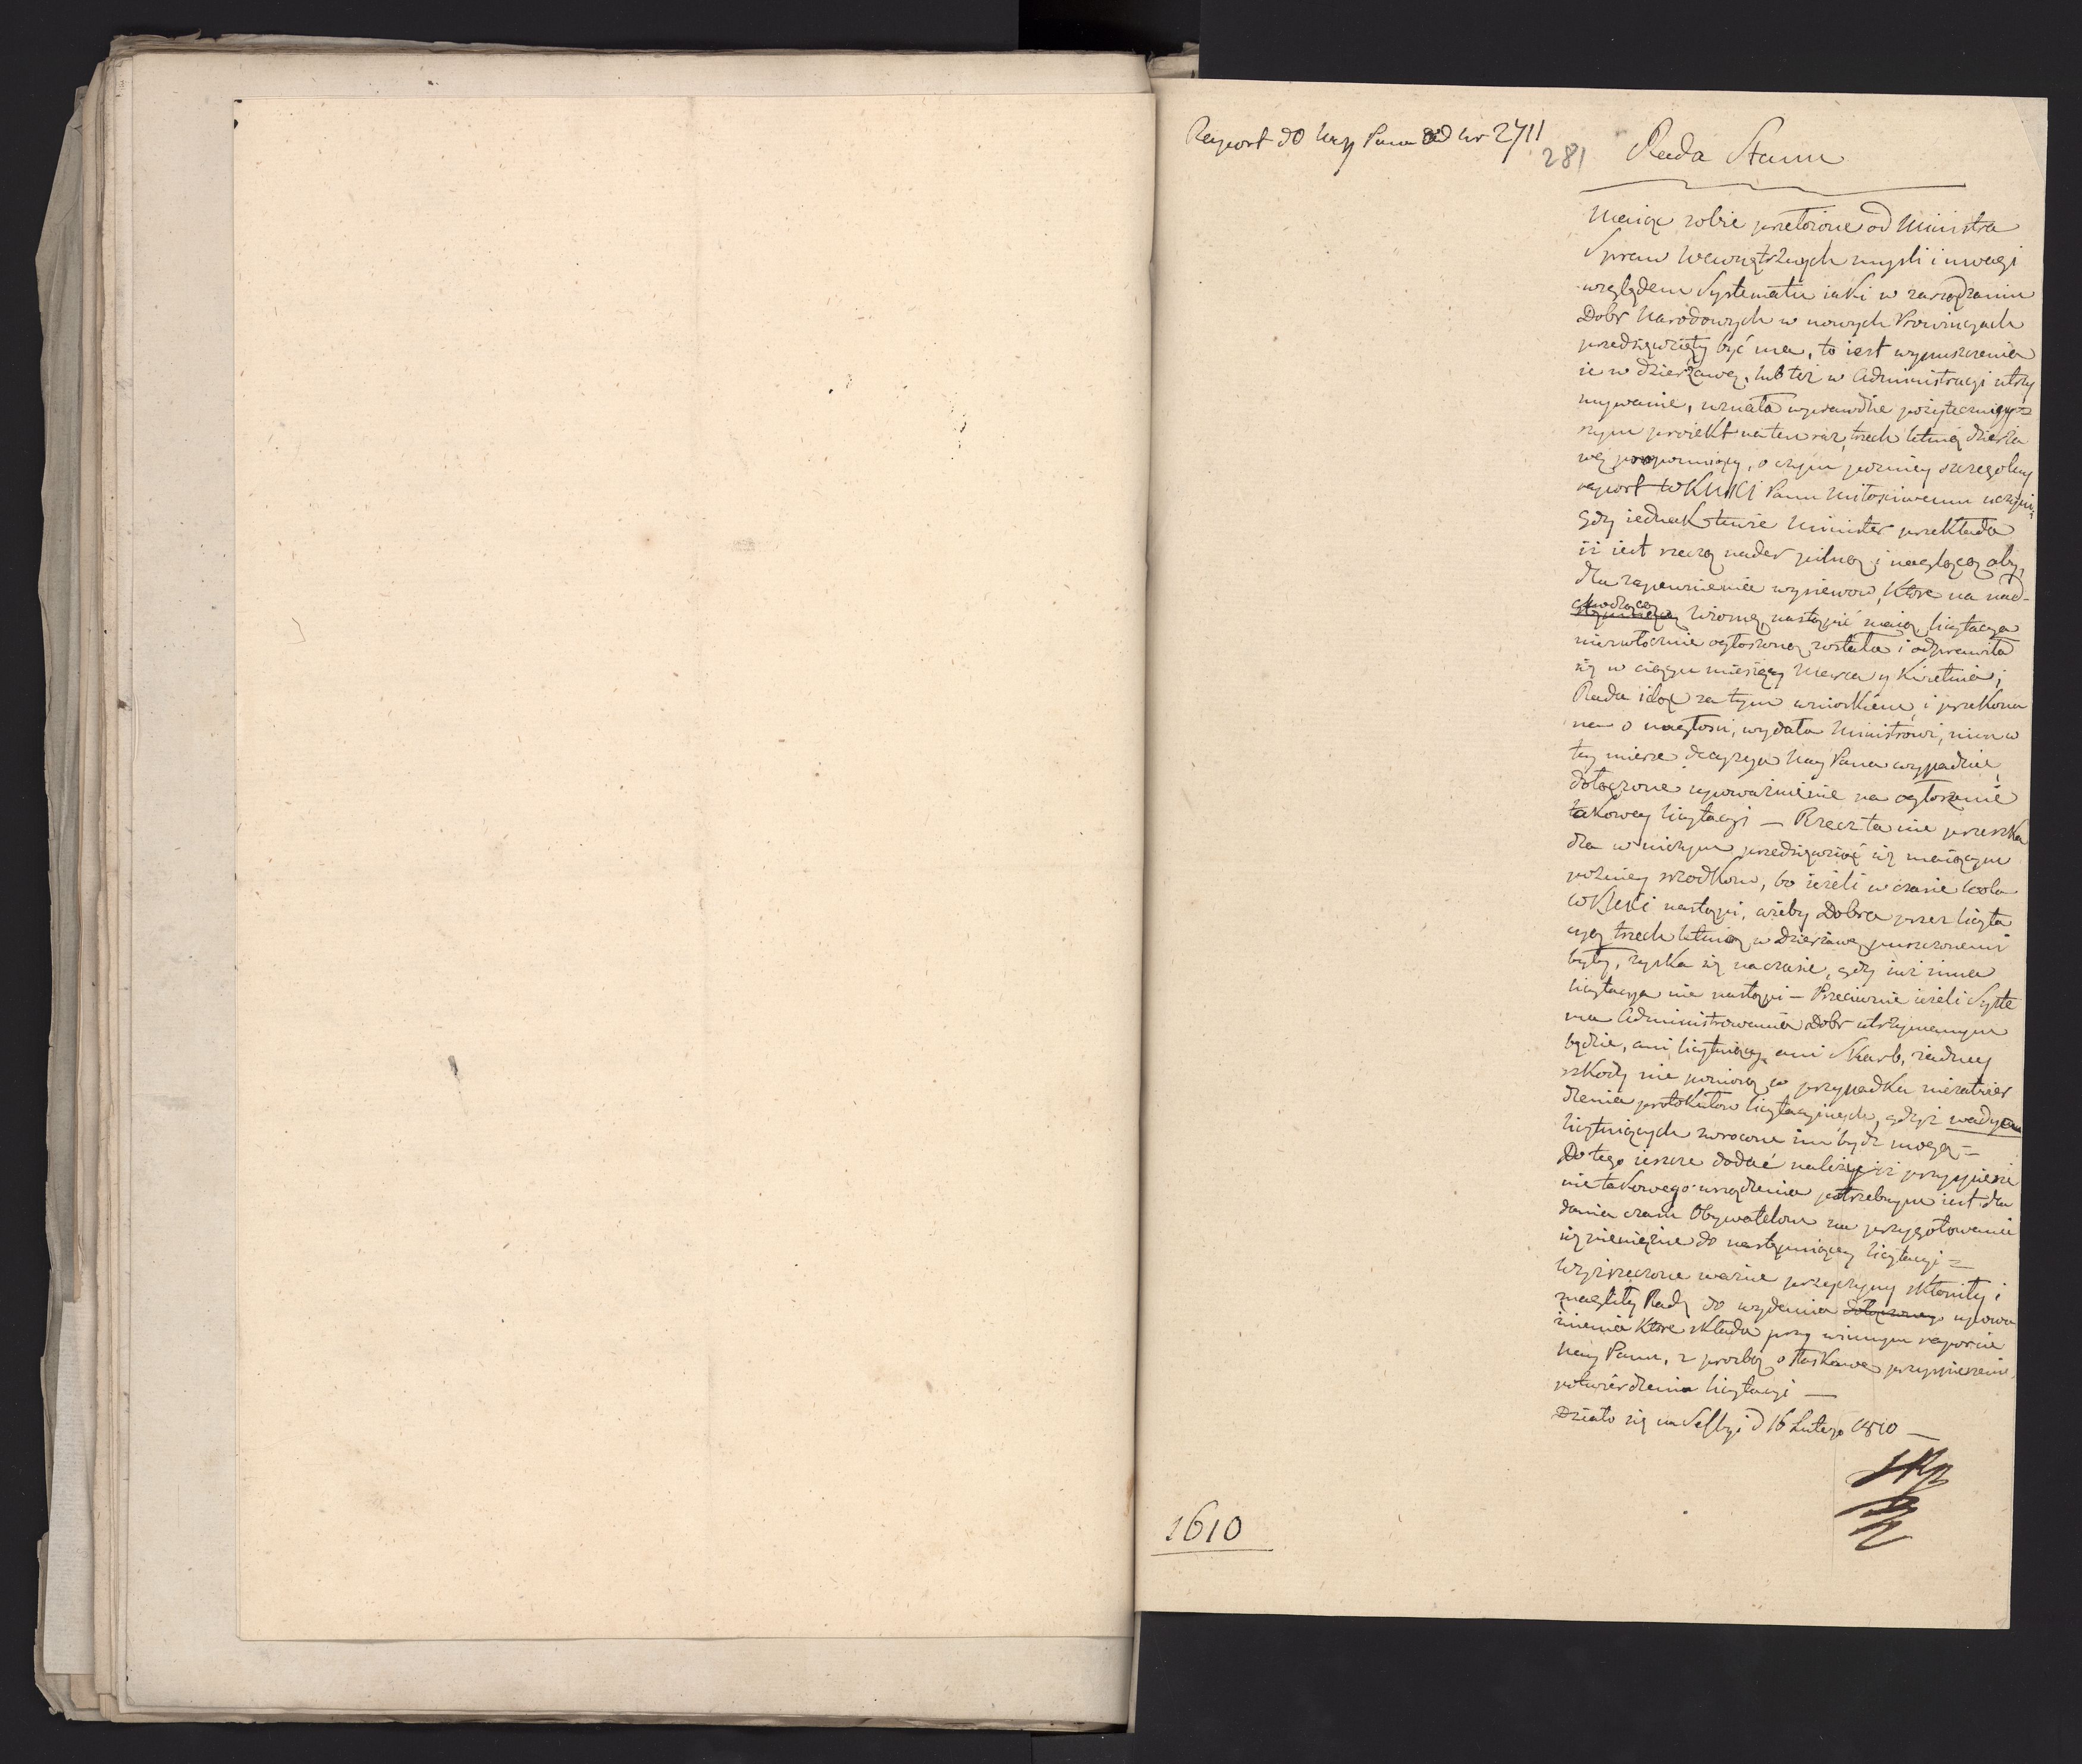 Raport do Nay Pana ad nr 2711
281
Rada Stanu
Maiąc sobie przełożone od Ministra
Spraw Wewnętrznych mysli i uwagi
względem Systematu iaki w zarządzaniu
Dobr Narodowych w nowych Prowincyach
przedsięwzięty być ma, to iest wypuszczenia
ie w dzierżawę, lub też w Administracyi utrzy
mywanie, uznała wprawdzie pożyteczniey-
szym proiekt na ten raz, trzech letnią dzierża
wę, o czym pozniey szczegolny
raport WKMCi Panu Miłosciwemu uczyni,
gdy iednak tenże Minister przekłada
iż iest rzeczą nader pilną i naglącą aby,
dla zapewnienia wysiewow, ktore na nad-
chodzącą Wiosnę, nastąpić maią, licytacya
niezwłocznie ogłoszoną została i odprawiła
się w ciągu miesięcy Marca y Kwietnia;
Rada idąc za tym wnioskiem, i przekona
na o nagłosci, wydała Ministrowi, nim w
tey mierze decyzya Nay Pana wypadnie,
dołączone upoważnienie na ogłoszenie
takowey licytacyi — Rzecz ta nie przeszka
dza w niczym przedsięwziąć się maiącym
pozniey srzodkom, bo ieżeli w czasie wola
WKMCi nastąpi, ażeby Dobra przez licyta
cyą trzech letnią w dzierżawę puszczonemi
były, zyska się na czasie, gdy iuż inna
licytacya nie nastąpi — Przeciwnie ieżeli Syste
ma Administrowania Dobr utrzymanym
będzie, ani licytuiący, ani Skarb, żadney
szkody nie poniosą, w przypadku niezatwier
dzenia protokułow licytacyinych, gdyż wadya
licytuiących zwrocone im bydz mogą —
Do tego ieszcze dodać należy iż przyspiesze
nie takowego urządzenia potrzebnym iest dla
dania czasu Obywatelom na przygotowanie
się pieniężne do następuiącey licytacyi =
Wyżrzeczone ważne przyczyny skłoniły i
znagliły Radę do wydania dołączonego upowa
żnienia ktore składa przy winnym raporcie
Nay Panu, z prozbą o łaskawe przyspieszenie
potwierdzenia licytacyi —
Działo się na Sessyi d 16 Lutego 1810 —
1610